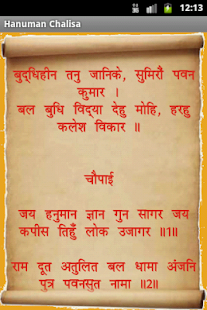 12:13
Hanuman Chalisa
बुद्धिहीन तनु जानिके, सुमिरौ पवन
कुमार ।
बल बुधि विद्या देहु मोहि, हरहु
कलेश विकार ॥
चौपाई
जय हनुमान ज्ञान गुन सागर जय
कपीस तिहुँ लोक उजागर ॥1॥
राम दूत अतुलित बल धामा अंजनि
पुत्र पवनसुत नामा ॥2॥